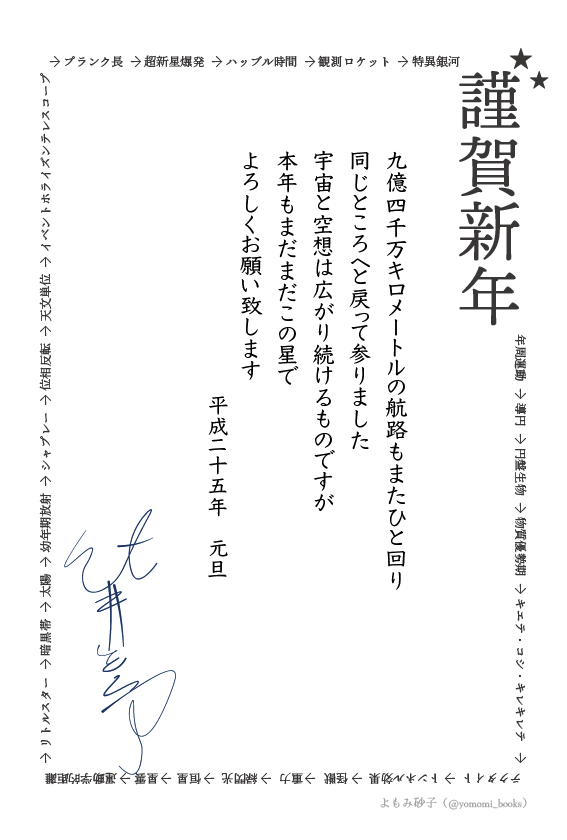 謹賀新年
九億四千万キロメートルの航路もまたひと回り
同じところへと戻って参りました
宇宙と空想は広がり続けるものですが
本年もまだまだこの星で
よろしくお願い致します
平成二十五年　元旦
年周運動 → 導円 → 円盤生物 → 物質優勢期 → キエテ・コシ・キレキレテ →
テクタイト → トンネル効果 → 怪獣 → 重力 → 緑閃光 → 恒星 → 星雲 → 運動学的距離
→ リトルスター → 暗黒帯 → 太陽 → 幼年期放射 → シャプレー → 位相反転 → 天文単位 → イベントホライズンテレスコープ
→ プランク長 → 超新星爆発 → ハッブル時間 → 観測ロケット → 特異銀河
よもみ砂子（@yomomi_books）